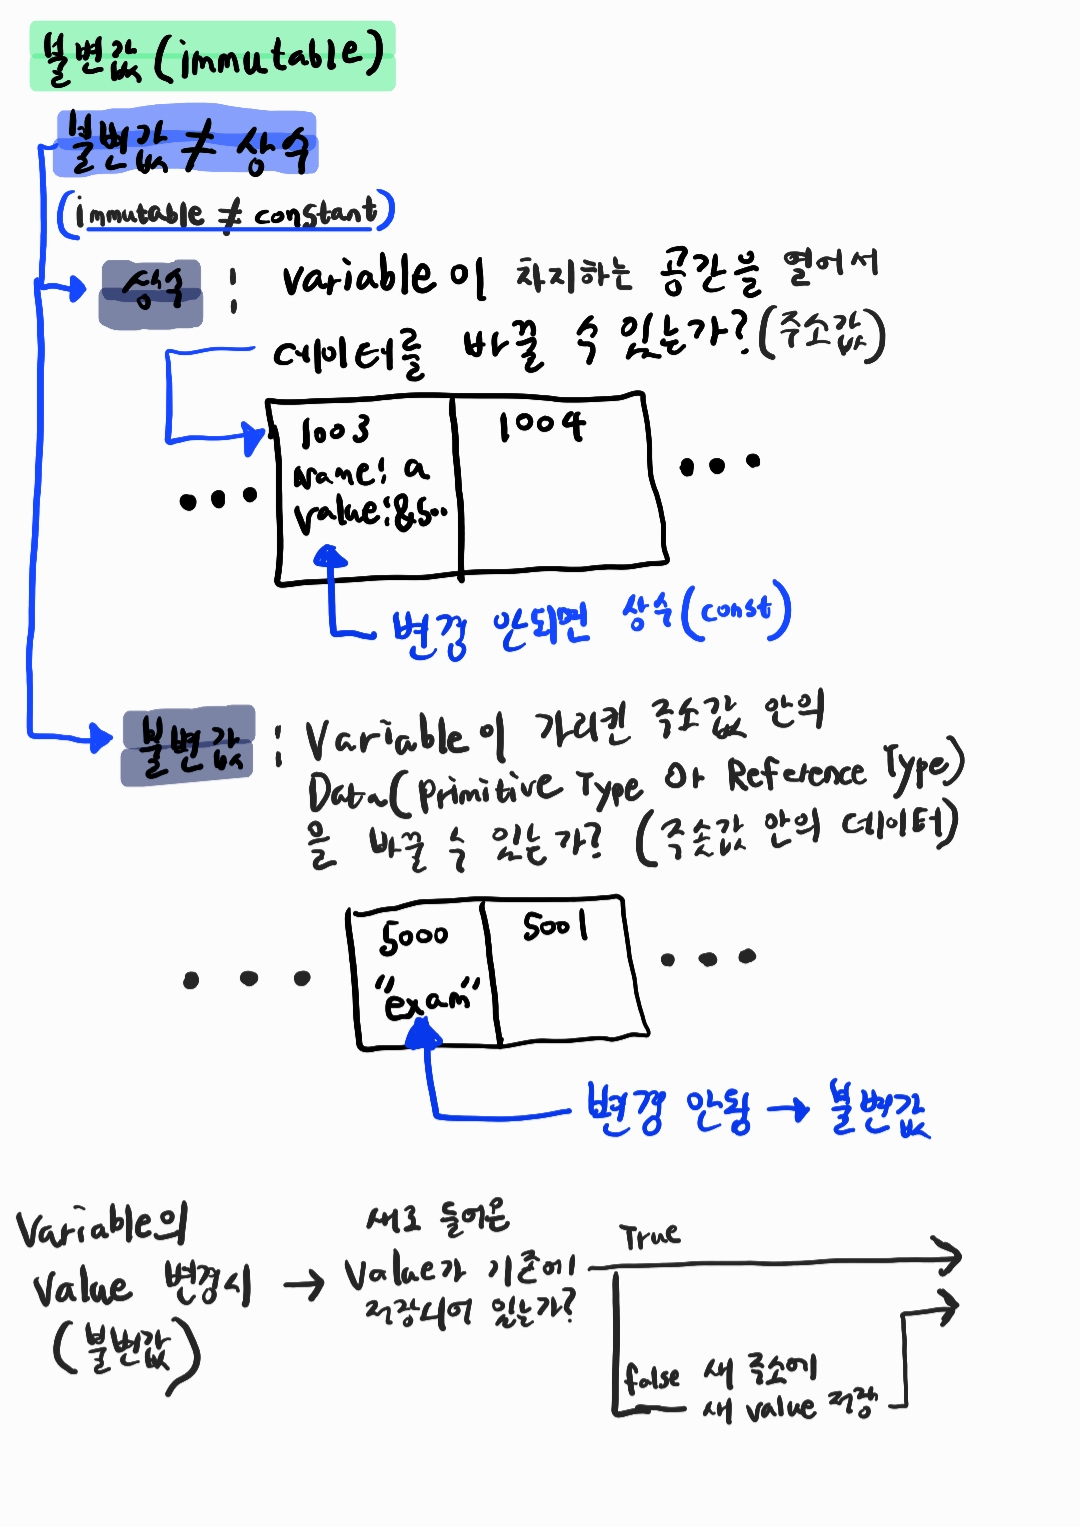 불변값 (immutable)
불변값 ≠ 상수
(immutable ≠ constant)
상수 : Variable이 차지하는 공간을 열어서
데이터를 바꿀 수 있는가? (주소값)
1003
name: a
value: &5..
1004
변경 안되면 상수(const)
불변값 : Variable이 가리킨 주소값 안의
Data(Primitive Type Or Reference Type)
을 바꿀 수 있는가? (주솟값 안의 데이터)
5000
"exam"
5001
변경 안됨 → 불변값
Variable의
Value 변경시
(불변값)
→
새로 들어온
Value가 기존에
저장되어 있는가?
True
false 새 주소에
새 value 저장